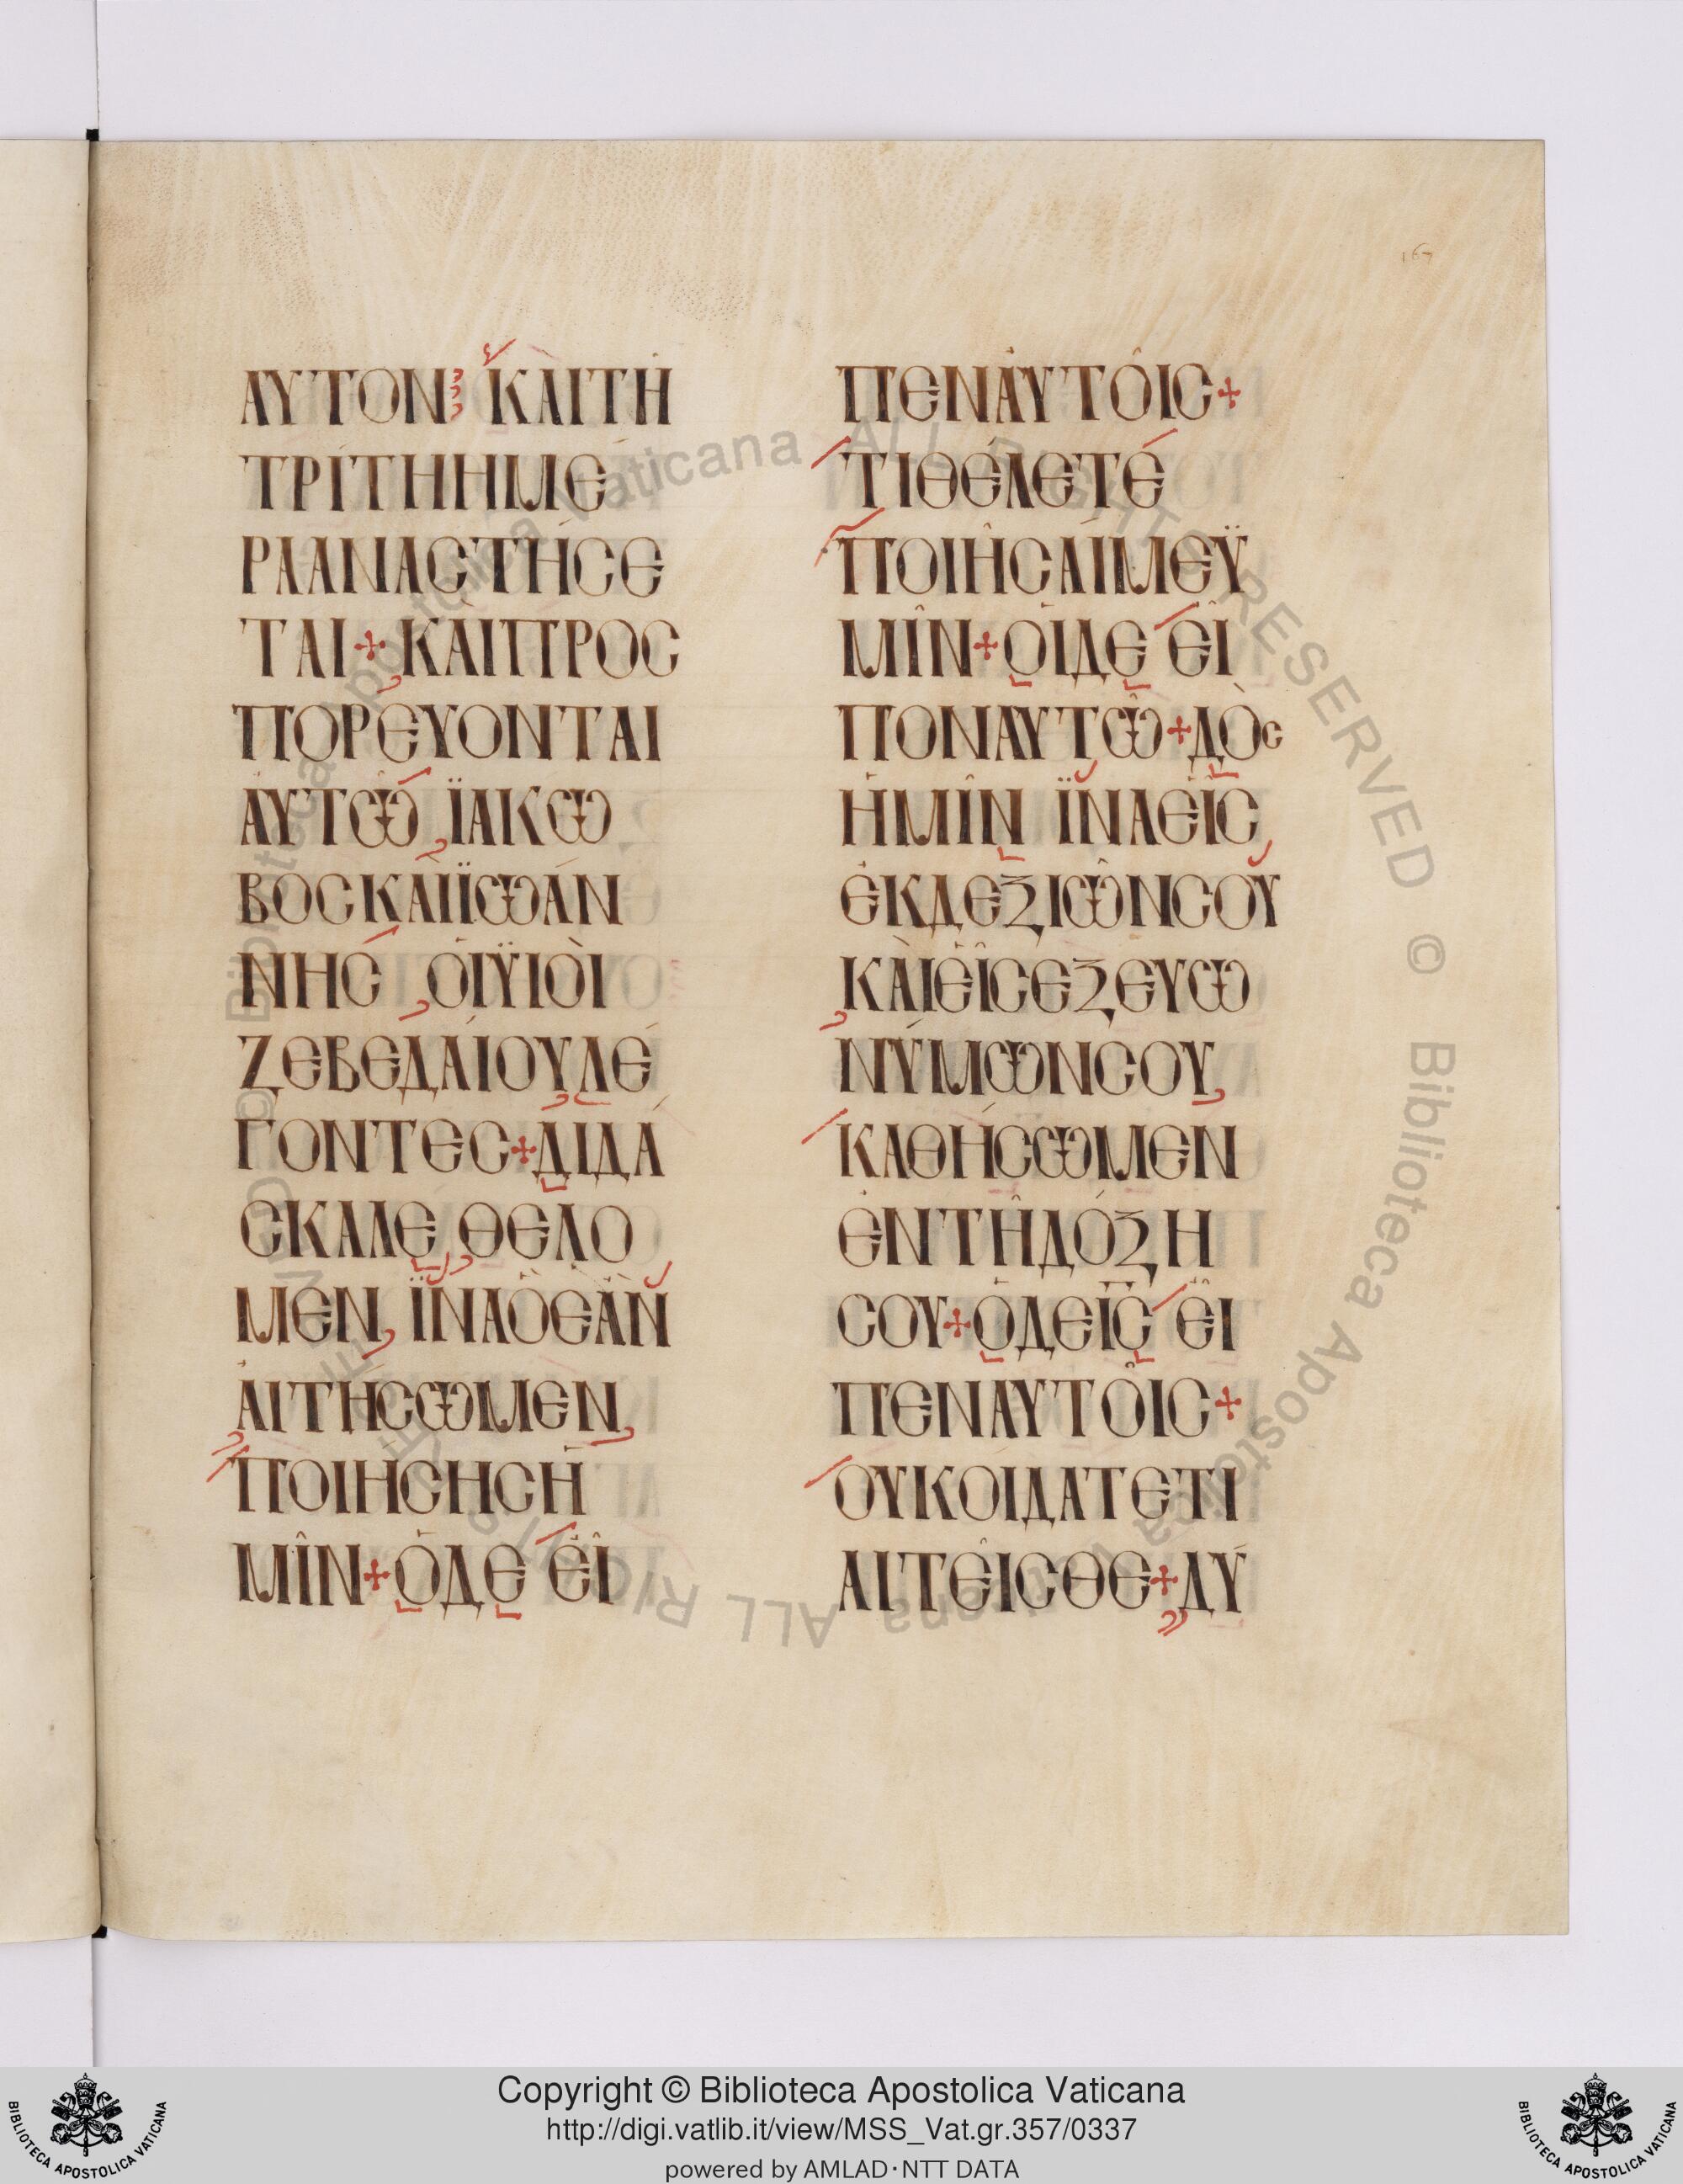 167
ΑΥΤΟΝ ΚΑΙΤΗ
ΤΡΙΤΗΗΜΕ
ΡΑΑΝΑΣΤΗΣΕ
ΤΑΙ+ΚΑΙΠΡΟΣ
ΠΟΡΕΥΟΝΤΑΙ
ΑΥΤΩ ΪΑΚΩ
ΒΟΣΚΑΙΪΩΑΝ
ΝΗΣ ΟΙΫΙΟΙ
ΖΕΒΕΔΑΙΟΥΛΕ
ΓΟΝΤΕΣ+ΔΙΔΑ
ΣΚΑΛΕ ΘΕΛΟ
ΜΕΝ ΪΝΑΟΕΑΝ
ΑΙΤΗΣΩΜΕΝ
ΠΟΙΗΣΗΣΗ
ΜΙΝ+ΟΔΕ ΕΙ
ΠΕΝΑΥΤΟΙΣ+
ΤΙΘΕΛΕΤΕ
ΠΟΙΗΣΑΙΜΕΫ
ΜΙΝ+ΟΙΔΕ ΕΙ
ΠΟΝΑΥΤΩ+ΔΟΣ
ΗΜΙΝ ΪΝΑΕΙΣ
ΕΚΔΕΞΙΩΝΣΟΥ
ΚΑΙΕΙΣΕΞΕΥΩ
ΝΥΜΩΝΣΟΥ
ΚΑΘΗΣΩΜΕΝ
ΕΝΤΗΔΟΞΗ
ΣΟΥ+ΟΔΕΙΣ ΕΙ
ΠΕΝΑΥΤΟΙΣ+
ΟΥΚΟΙΔΑΤΕΤΙ
ΑΙΤΕΙΣΘΕ+ΔΥ
© Biblioteca Apostolica Vaticana ALL RIGHTS RESERVED © Biblioteca Apostolica Vaticana ALL RIGHTS RESERVED
Copyright © Biblioteca Apostolica Vaticana
http://digi.vatlib.it/view/MSS_Vat.gr.357/0337
powered by AMLAD·NTT DATA
BIBLIOTECA APOSTOLICA VATICANA
BIBLIOTECA APOSTOLICA VATICANA